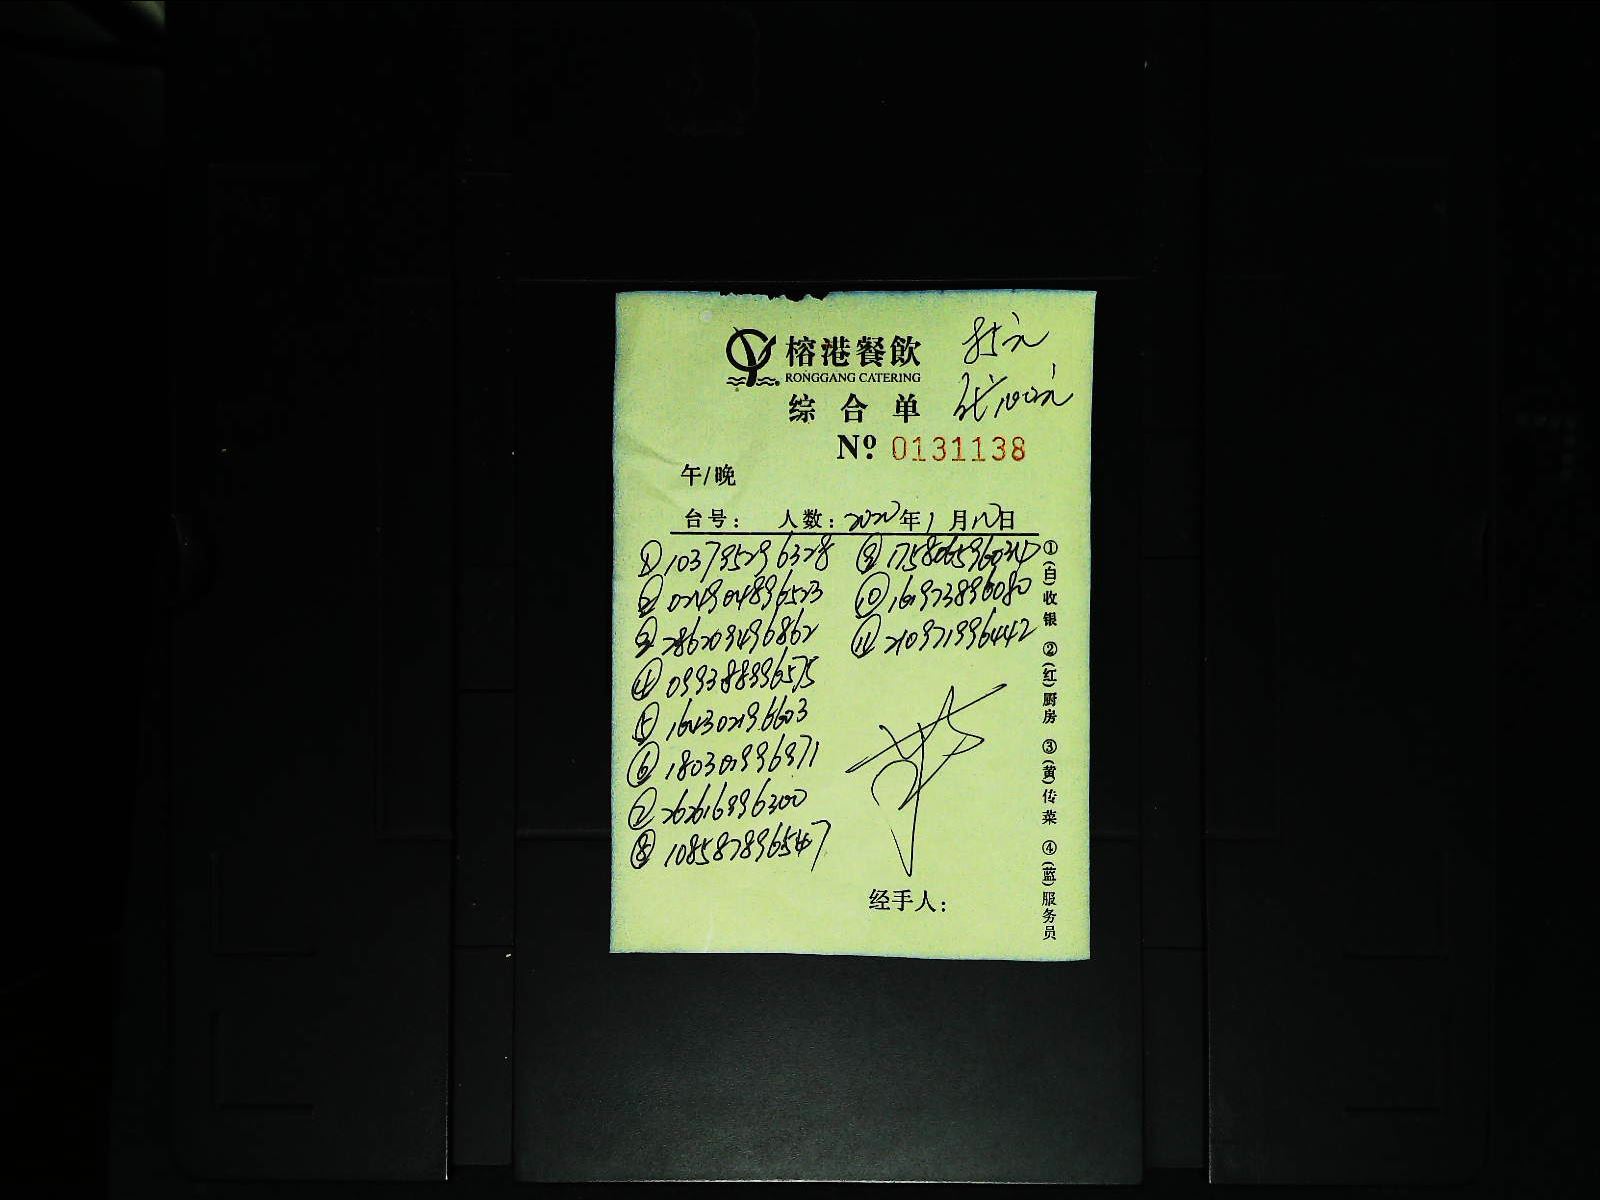 榕港餐飲
RONGGANG CATERING
综合单
85元
№ 0131138
午/晚
台号： 人数：2022年1月12日
① 103795296328
② 024904896523
③ 286209496862
④ 099388996575
⑤ 164302196603
⑥ 180301996971
⑦ 262616996300
⑧ 108587896547
⑩ 161973896080
⑪ 210971996442
经手人：
①(白)收银 ②(红)厨房 ③(黄)传菜 ④(蓝)服务员